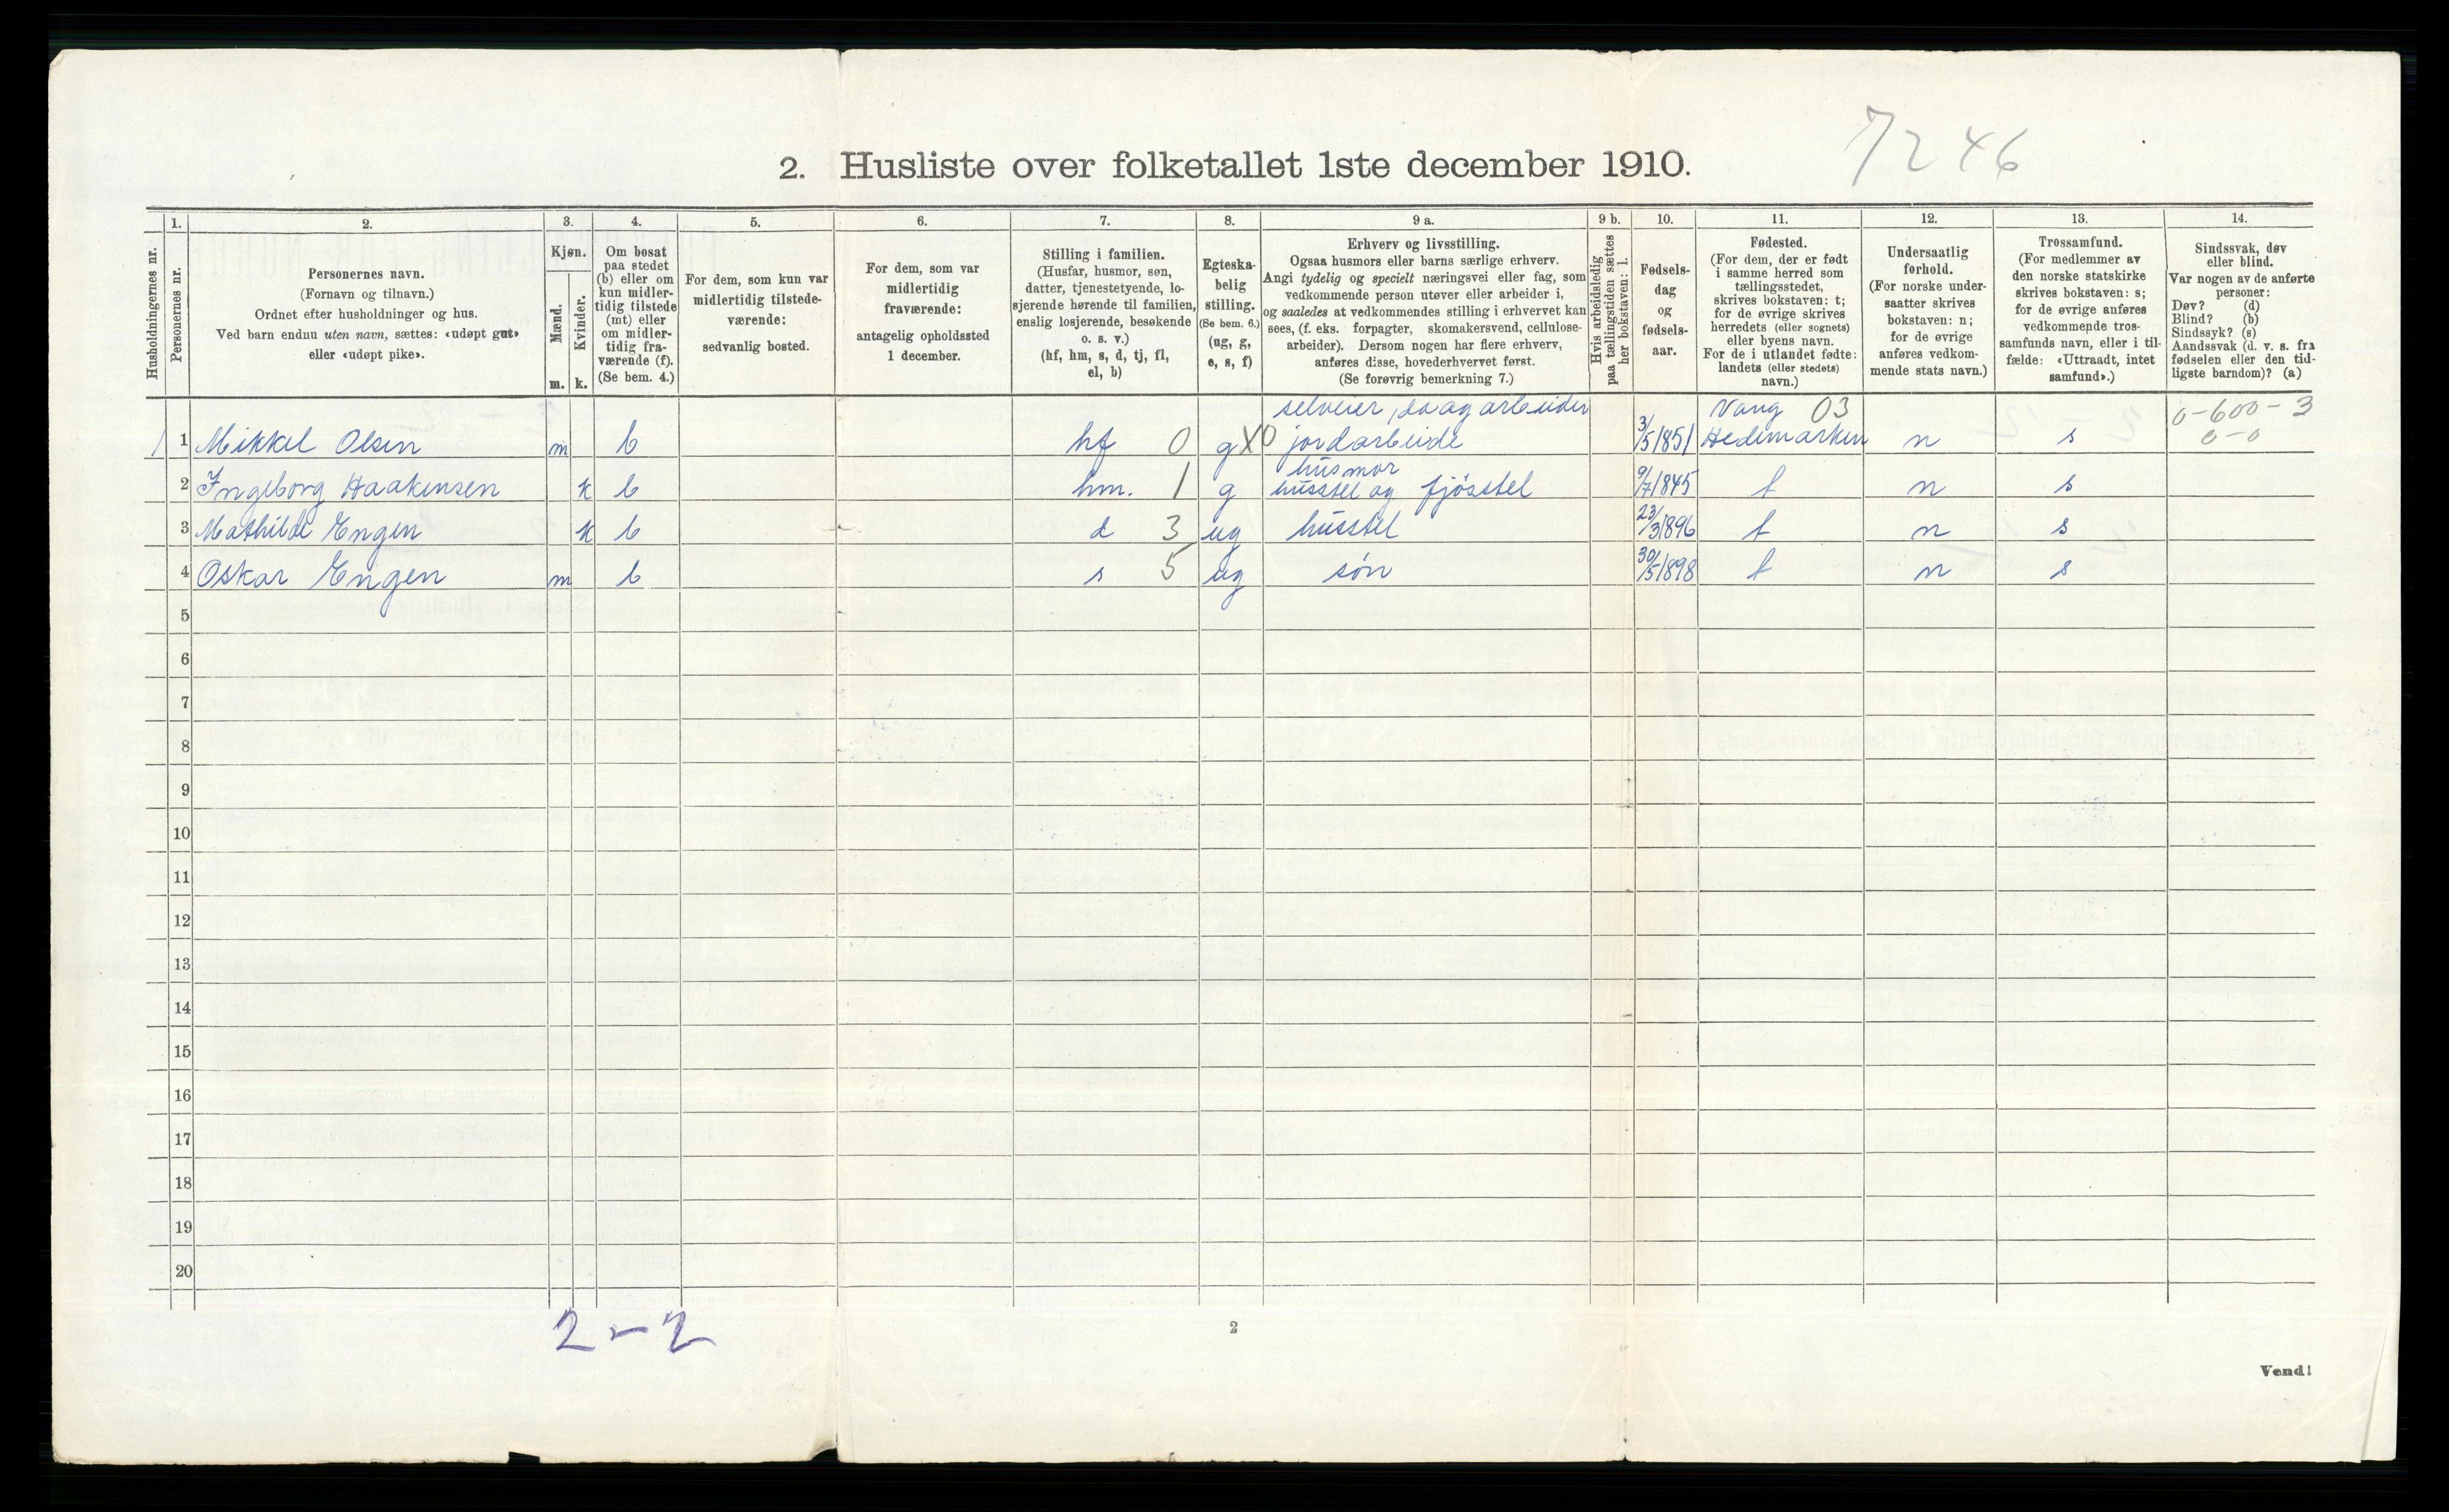 7246
2. Husliste over folketallet 1ste december 1910.
1. 2. 3. 4. 5. 6. 7. 8. 9 a. 9 b. 10. 11. 12. 13. 14.
Husholdningernes nr.
Personernes nr.
Personernes navn.
(Fornavn og tilnavn.)
Ordnet efter husholdninger og hus.
Ved barn endnu uten navn, sættes: «udøpt gut»
eller «udøpt pike».
Kjøn.
Mænd.
Kvinder.
m. k.
Om bosat
paa stedet
(b) eller om
kun midler-
tidig tilstede
(mt) eller
om midler-
tidig fra-
værende (f).
(Se bem. 4.)
For dem, som kun var
midlertidig tilstede-
værende:
sedvanlig bosted.
For dem, som var
midlertidig
fraværende:
antagelig opholdssted
1 december.
Stilling i familien.
(Husfar, husmor, søn,
datter, tjenestetyende, lo-
sjerende hørende til familien,
enslig losjerende, besøkende
o. s. v.)
(hf, hm, s, d, tj, fl,
el, b)
Egteska-
belig
stilling.
(Se bem. 6.)
(ug, g,
e, s, f)
Erhverv og livsstilling.
Ogsaa husmors eller barns særlige erhverv.
Angi tydelig og specielt næringsvei eller fag, som
vedkommende person utøver eller arbeider i,
og saaledes at vedkommendes stilling i erhvervet kan
sees, (f. eks. forpagter, skomakersvend, cellulose-
arbeider). Dersom nogen har flere erhverv,
anføres disse, hovederhvervet først.
(Se forøvrig bemerkning 7.)
Hvis arbeidsledig
paa tællingstiden sættes
her bokstaven: l.
Fødsels-
dag
og
fødsels-
aar.
Fødested.
(For dem, der er født
i samme herred som
tællingsstedet,
skrives bokstaven: t;
for de øvrige skrives
herredets (eller sognets)
eller byens navn.
For de i utlandet fødte:
landets (eller stedets)
navn.)
Undersaatlig
forhold.
(For norske under-
saatter skrives
bokstaven: n;
for de øvrige
anføres vedkom-
mende stats navn.)
Trossamfund.
(For medlemmer av
den norske statskirke
skrives bokstaven: s;
for de øvrige anføres
vedkommende tros-
samfunds navn, eller i til-
fælde: «Uttraadt, intet
samfund».)
Sindssvak, døv
eller blind.
Var nogen av de anførte
personer:
Døv? (d)
Blind? (b)
Sindssyk? (s)
Aandssvak (d. v. s. fra
fødselen eller den tid-
ligste barndom)? (a)
selveier, dagarbeider Vang 03 0-600-3
1 1 Mikkel Olsen m b hf 0 g X0 jordarbeide 3/5 1851 Hedemarken n s 0-0
husmor
2 Ingeborg Haakensen k b hm. 1 g husstel og fjösstel 9/7 1845 t n s
3 Mathilde Engen k b d 3 ug husstel 23/3 1896 t n s
4 Oskar Engen m b s 5 ug søn 30/5 1898 t n s
5
6
7
8
9
10
11
12
13
14
15
16
17
18
19
20
2-2
2
Vend!